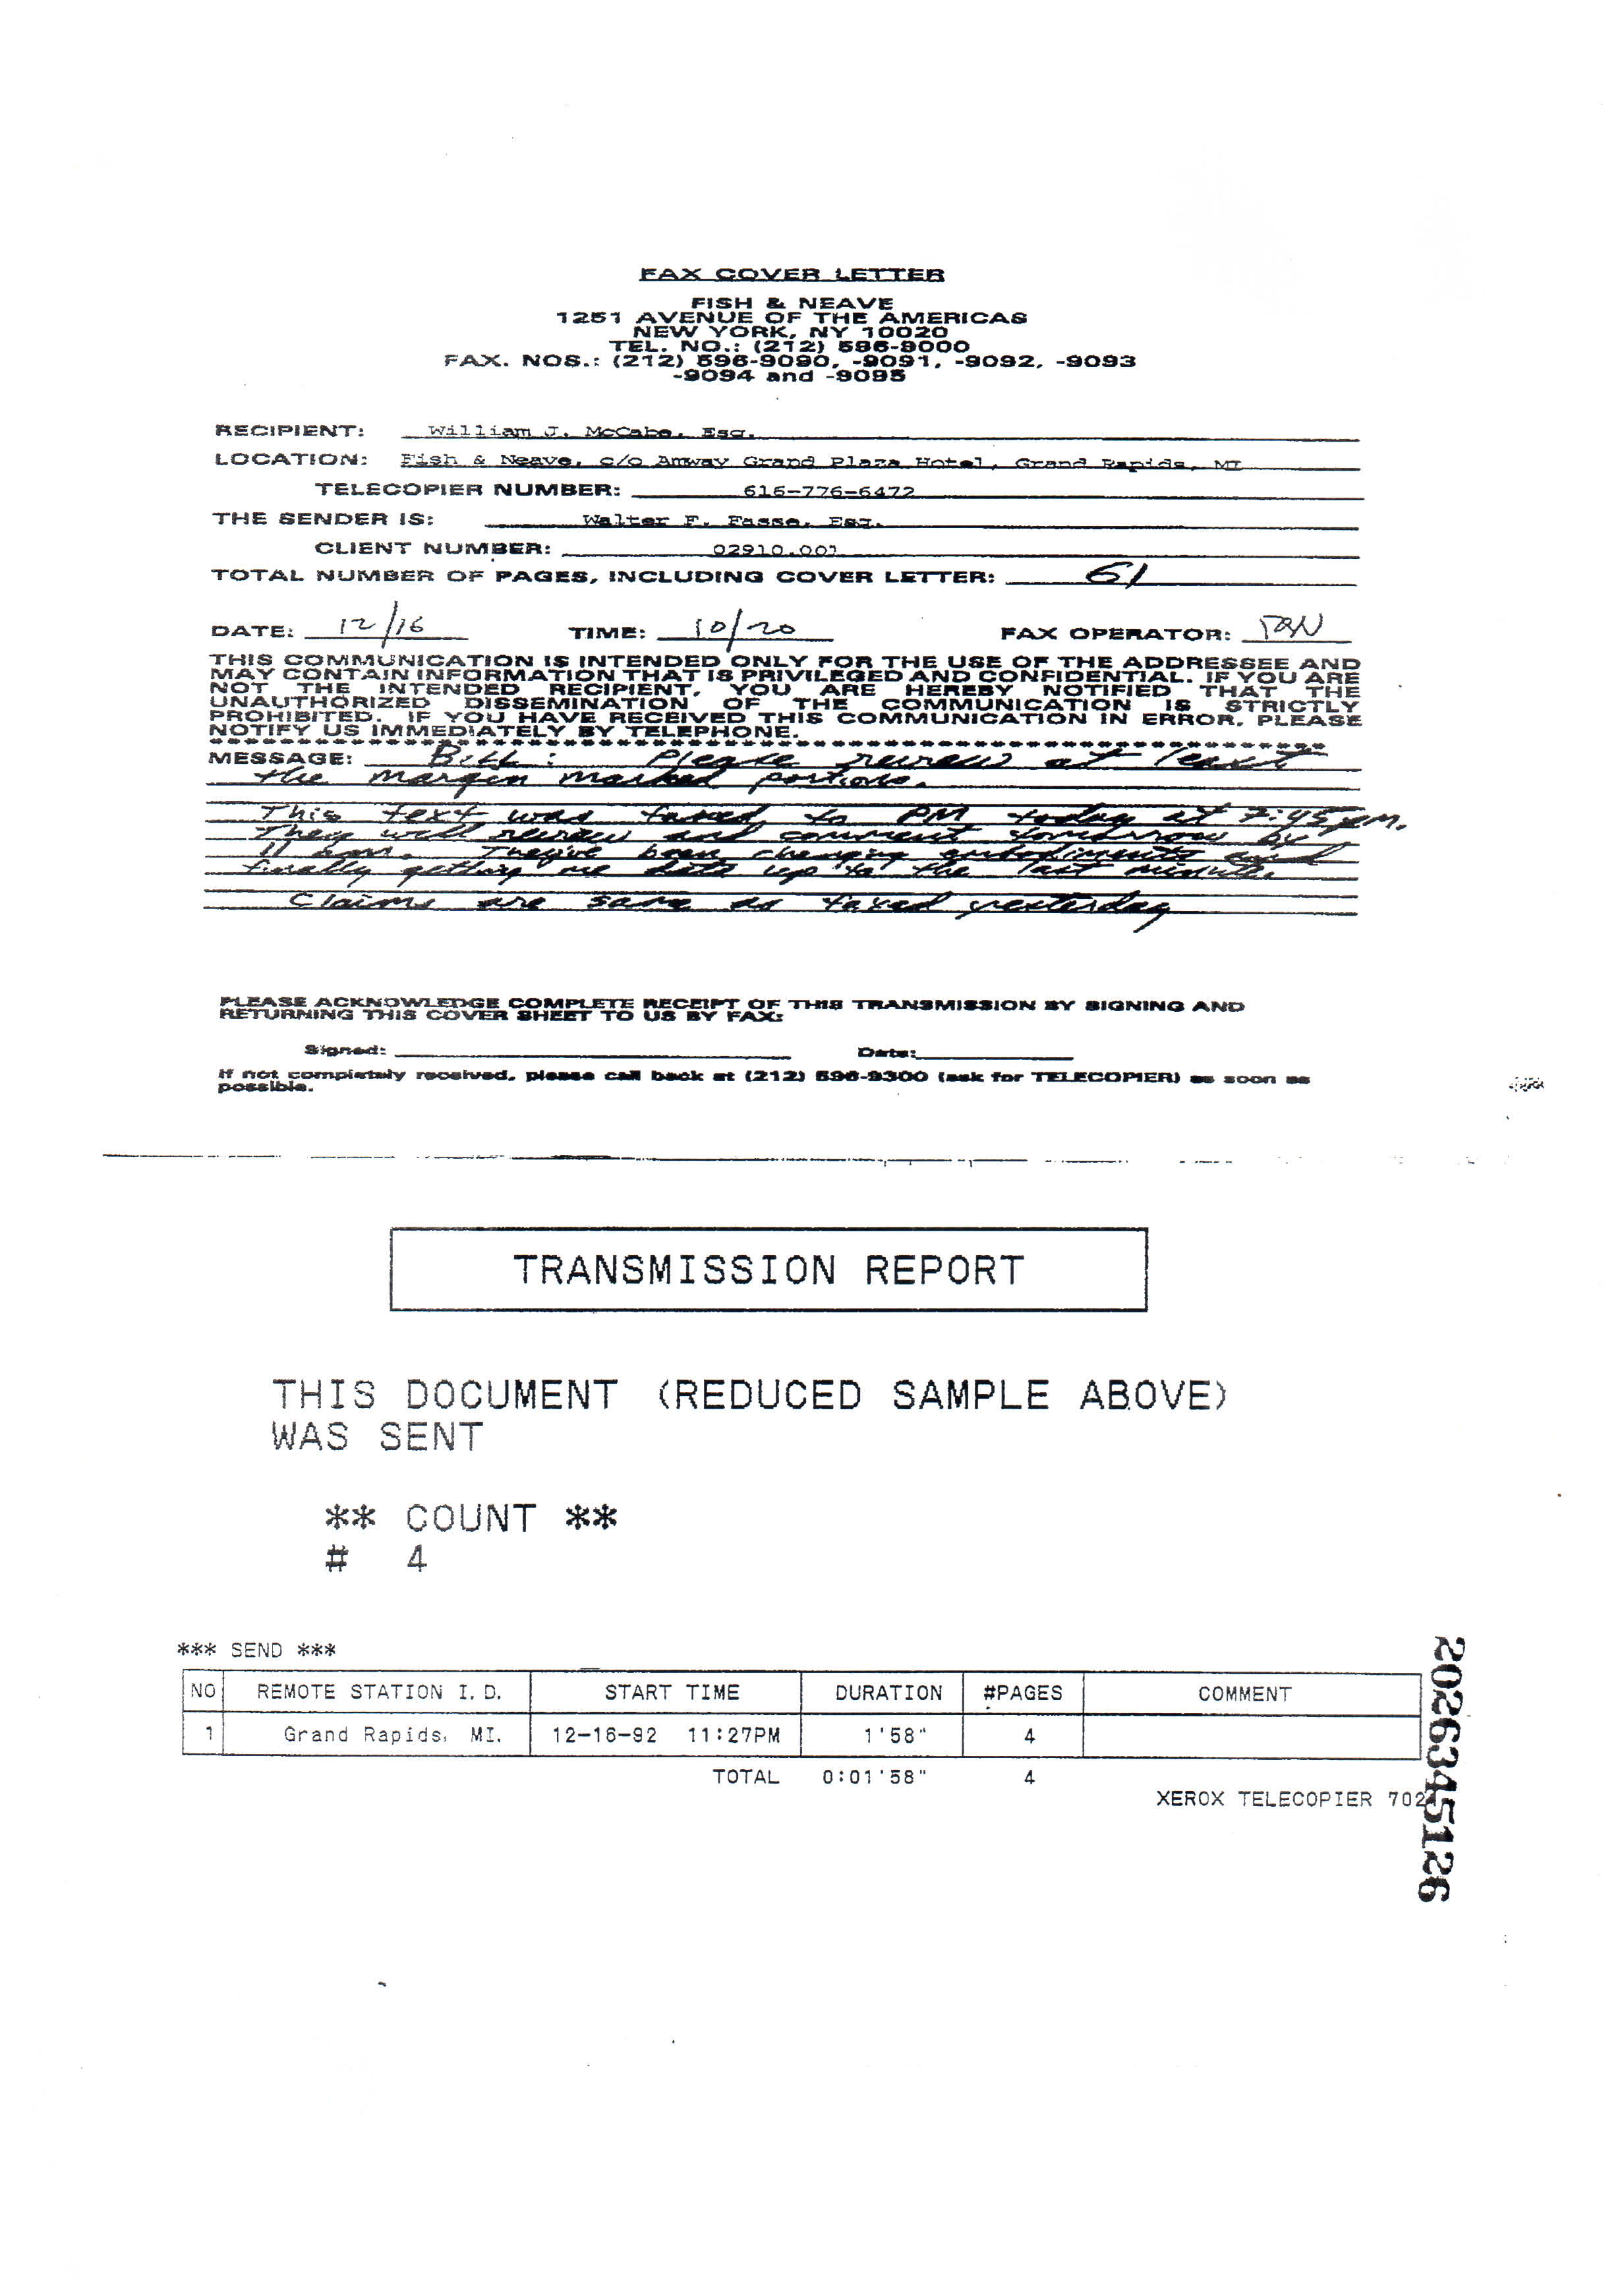 FAX COVER LETTER
FISH & NEAVE
1251 AVENUE OF THE AMERICAS
NEW YORK, NY 10020
TEL. NO.: (212) 596-9000
FAX. NOS.: (212) 596-9090, -9091, -9092, -9093
-9094 and -9095
RECIPIENT: William J. McCabe, Esq.
LOCATION: Fish & Neave, c/o Amway Grand Plaza Hotel, Grand Rapids, MI
TELECOPIER NUMBER: 616-776-6472
THE SENDER IS: Walter F. Fasse, Esq.
CLIENT NUMBER: 02910.001
TOTAL NUMBER OF PAGES, INCLUDING COVER LETTER: 61
DATE: 12/16 TIME: 10/20 FAX OPERATOR:
THIS COMMUNICATION IS INTENDED ONLY FOR THE USE OF THE ADDRESSEE AND
MAY CONTAIN INFORMATION THAT IS PRIVILEGED AND CONFIDENTIAL. IF YOU ARE
NOT THE INTENDED RECIPIENT, YOU ARE HEREBY NOTIFIED THAT THE
UNAUTHORIZED DISSEMINATION OF THE COMMUNICATION IS STRICTLY
PROHIBITED. IF YOU HAVE RECEIVED THIS COMMUNICATION IN ERROR, PLEASE
NOTIFY US IMMEDIATELY BY TELEPHONE.
MESSAGE: Bill: Please review at least
the margin marked portions.
This text was faxed to PM today at 7:45 pm.
They will review and comment tomorrow by
11 a.m. They've been changing embodiments and
finally getting me data up to the last minute.
Claims are same as faxed yesterday
PLEASE ACKNOWLEDGE COMPLETE RECEIPT OF THIS TRANSMISSION BY SIGNING AND
RETURNING THIS COVER SHEET TO US BY FAX:
Signed: Date:
If not completely received, please call back at (212) 596-9300 (ask for TELECOPIER) as soon as
possible.
TRANSMISSION REPORT
THIS DOCUMENT (REDUCED SAMPLE ABOVE)
WAS SENT
** COUNT **
# 4
*** SEND ***
NO REMOTE STATION I.D. START TIME DURATION #PAGES COMMENT
1 Grand Rapids, MI. 12-16-92 11:27PM 1'58" 4
TOTAL 0:01'58" 4
XEROX TELECOPIER 702
2026345126